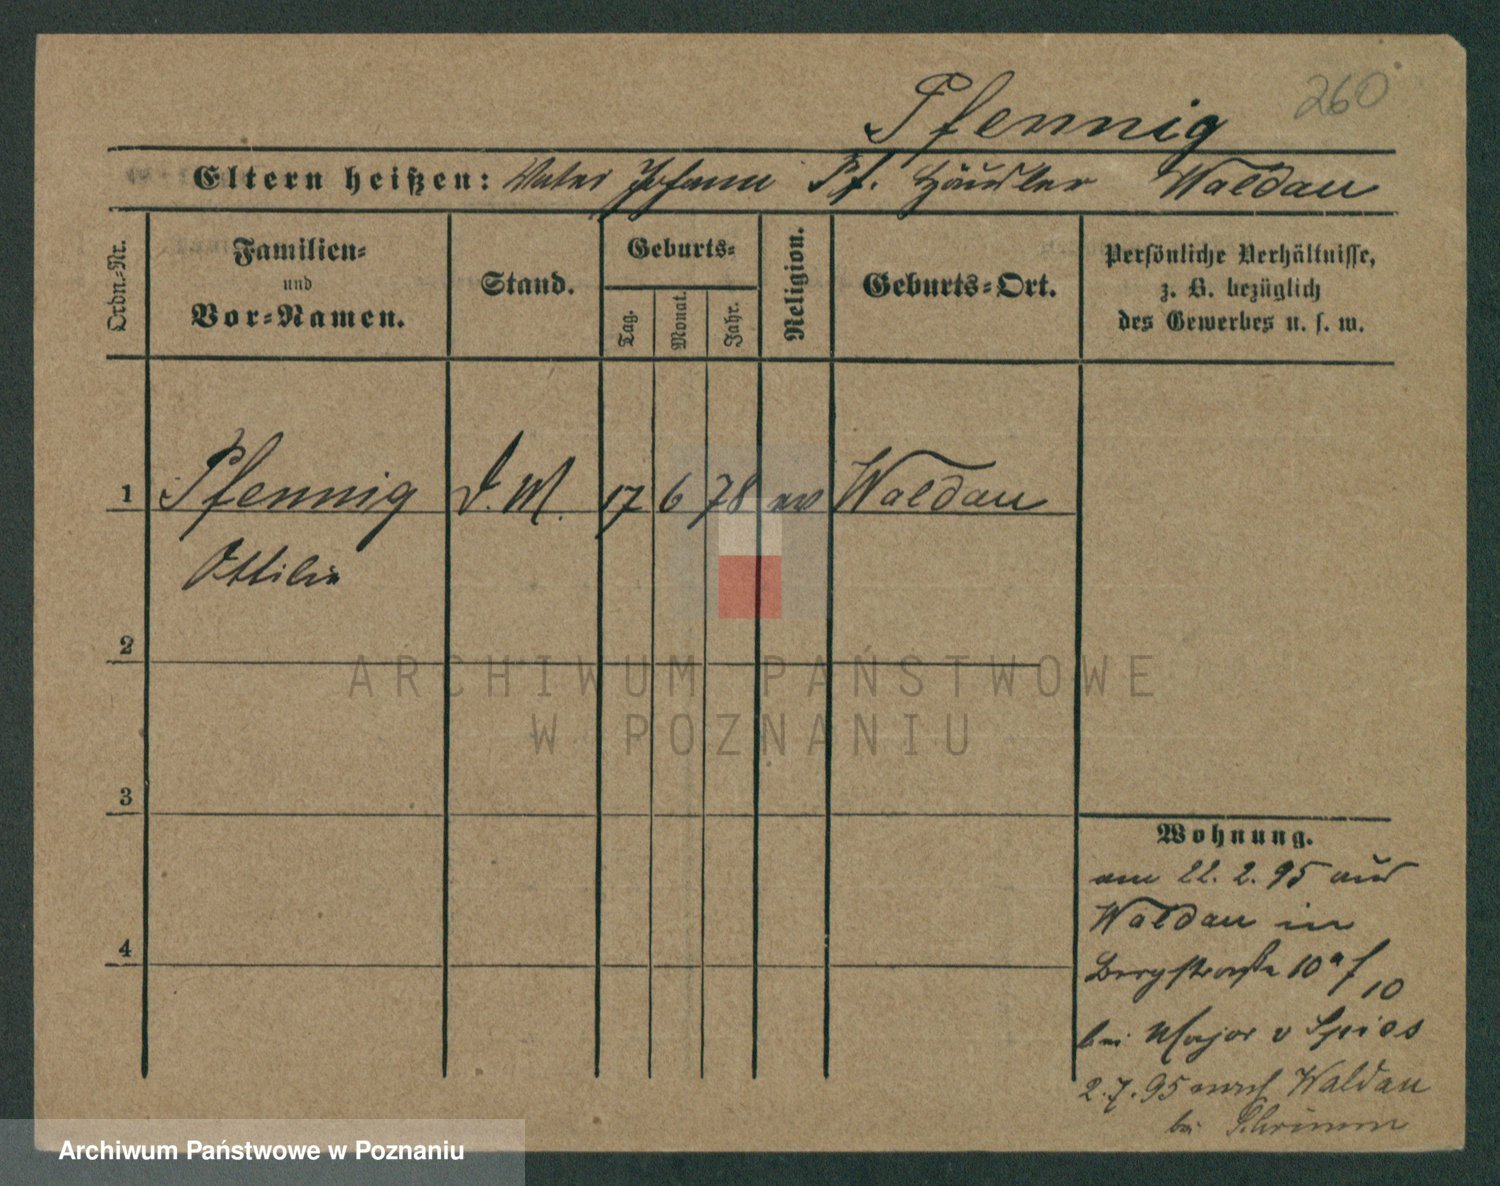 Pfennig 260
Eltern heißen: Vater Johann Pf. Händler Waldau
Ordn.-Nr.
Familien-
und
Vor-Namen.
Stand.
Geburts-
Tag.
Monat.
Jahr.
Religion.
Geburts-Ort.
Persönliche Verhältnisse,
z. B. bezüglich
des Gewerbes u. s. w.
1 Pfennig D. M. 17 6 78 ev Waldau
Ottilie
2
3
4
Wohnung.
am 22. 2. 95 aus
Waldau in
Bergstraße 10a f 10
bei Major v Spies
2.7.95 nach Waldau
bei Schrimm
ARCHIWUM PAŃSTWOWE
W POZNANIU
Archiwum Państwowe w Poznaniu